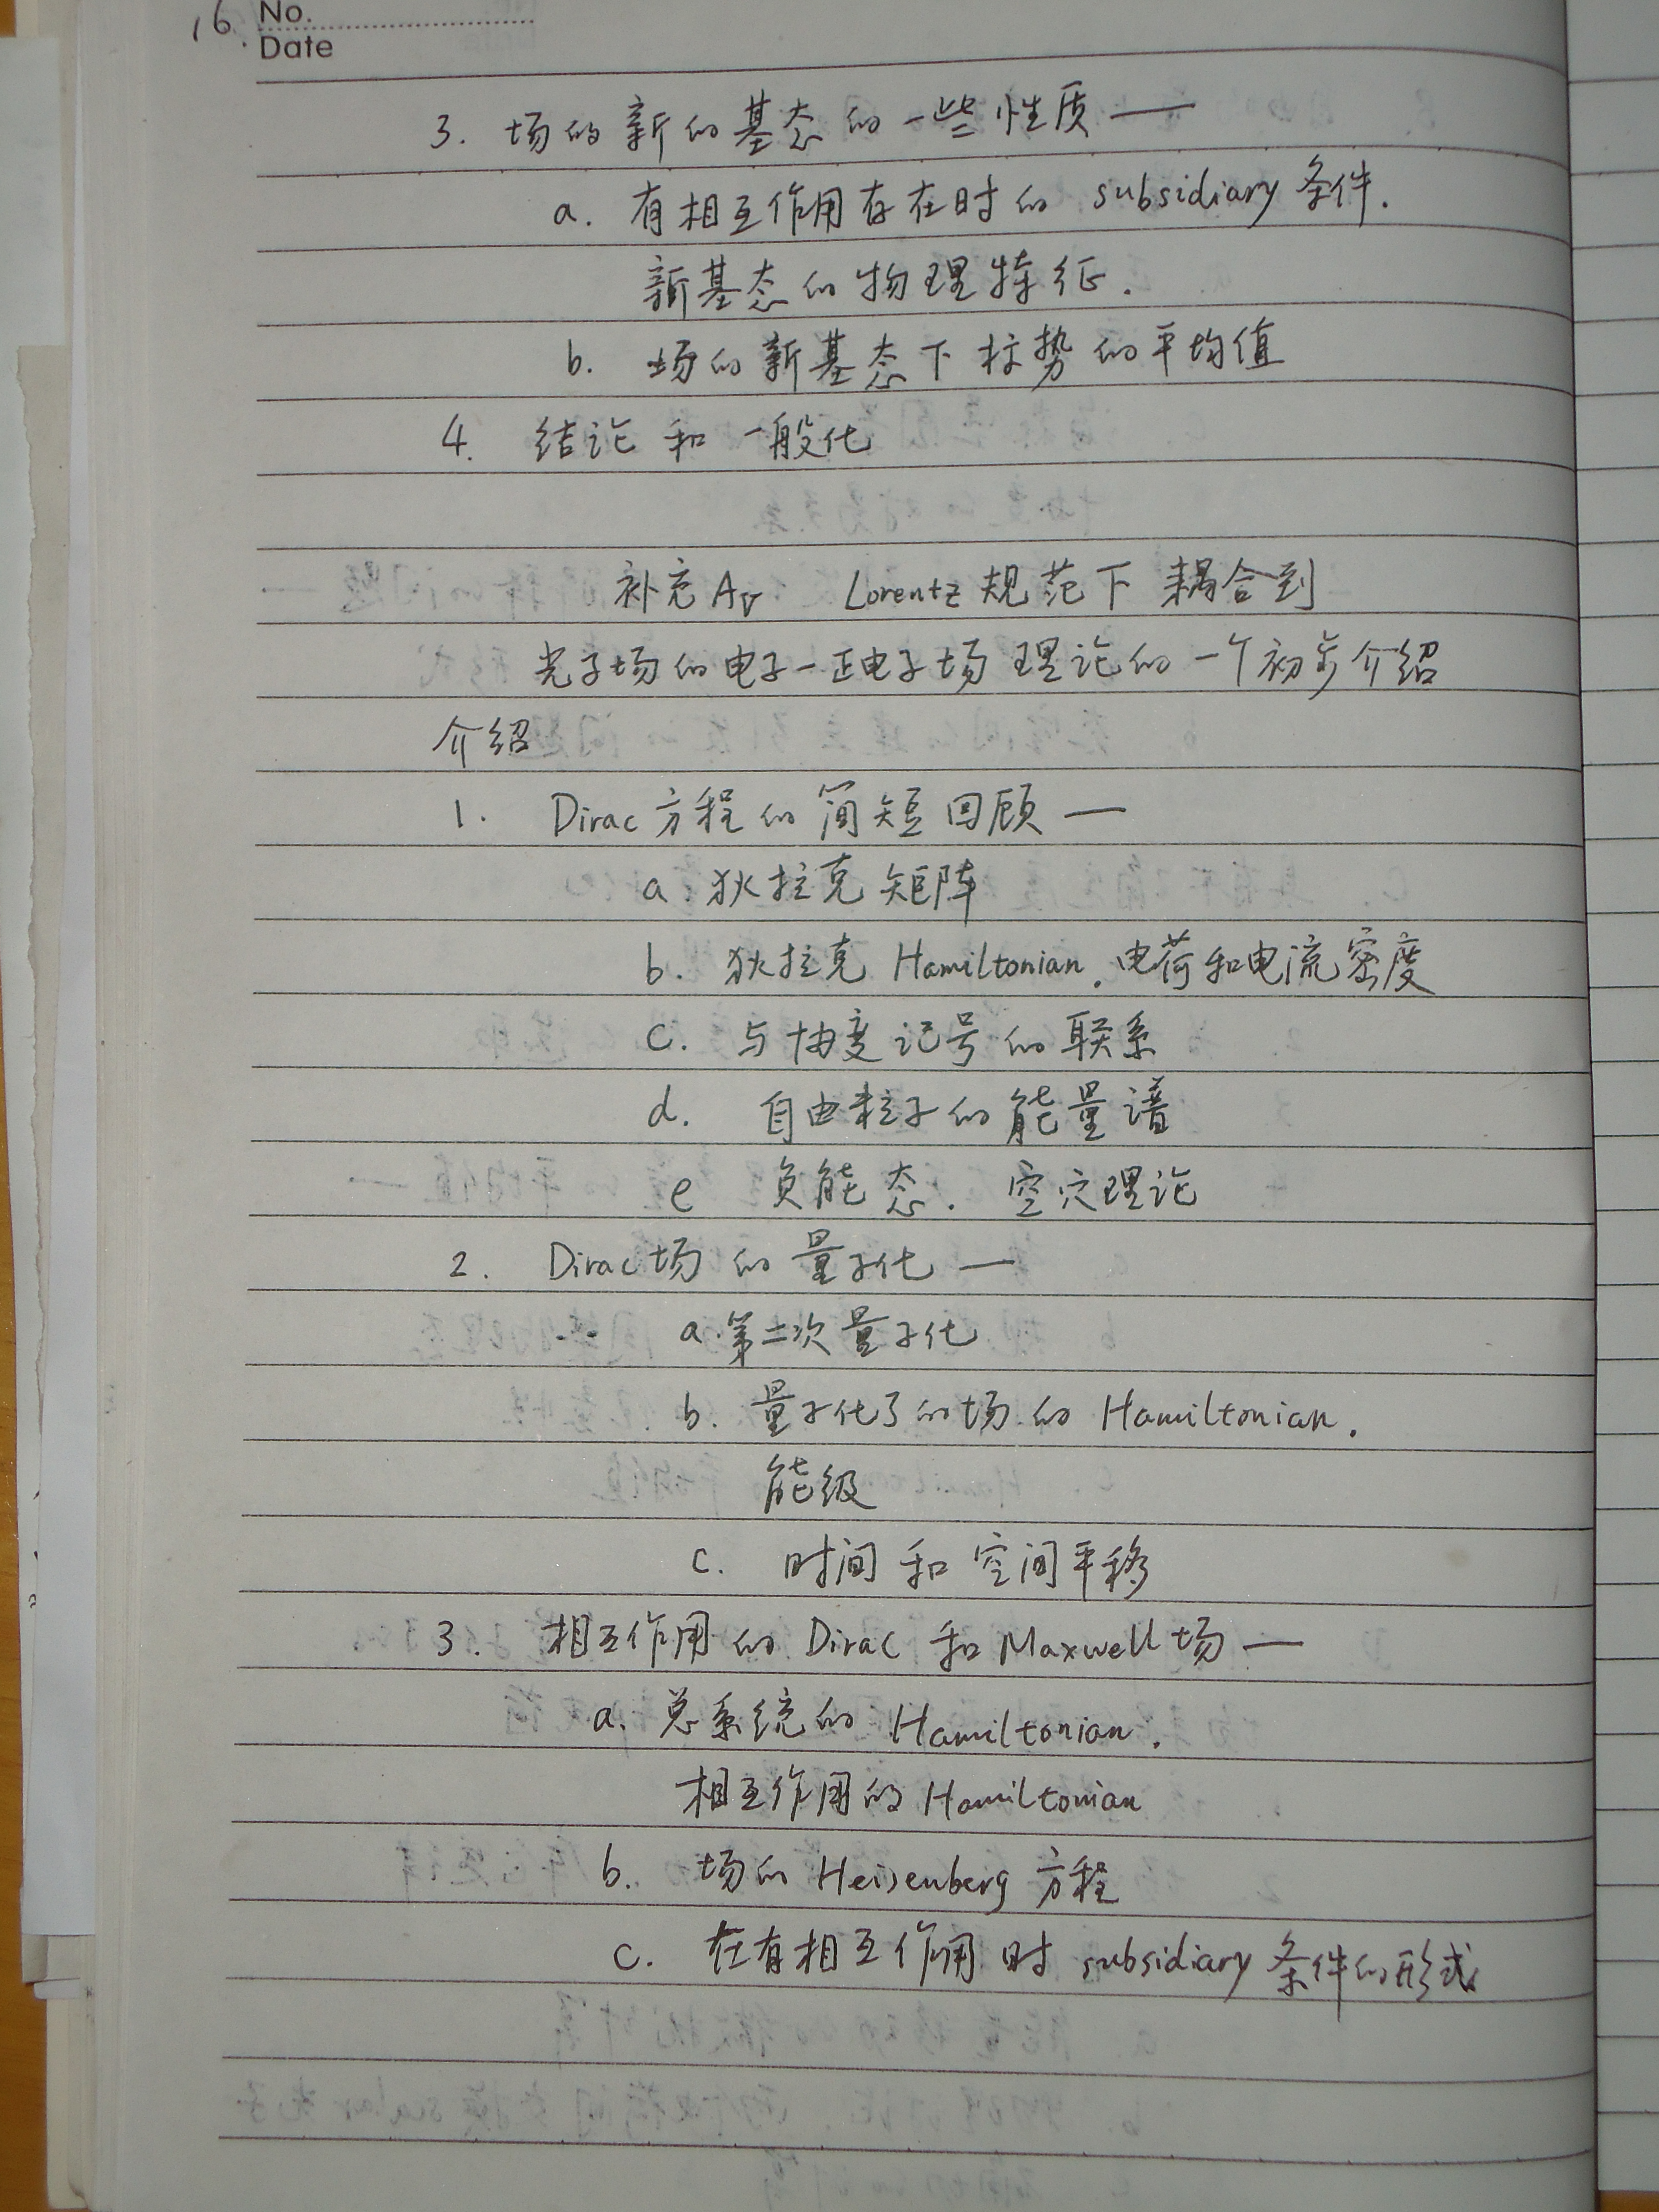 16. No.
Date
3. 场的新的基态的一些性质 —
a. 有相互作用存在时的 subsidiary 条件.
新基态的物理特征.
b. 场的新基态下标势的平均值
4. 结论和一般化
补充 AV Lorentz 规范下耦合到
光子场的电子-正电子场理论的一个初步介绍
介绍
1. Dirac 方程的简短回顾 —
a. 狄拉克矩阵
b. 狄拉克 Hamiltonian. 电荷和电流密度
c. 与协变记号的联系
d. 自由粒子的能量谱
e 负能态. 空穴理论
2. Dirac 场的量子化 —
a. 第二次量子化
b. 量子化了的场的 Hamiltonian.
能级
c. 时间和空间平移
3. 相互作用的 Dirac 和 Maxwell 场 —
a. 总系统的 Hamiltonian.
相互作用的 Hamiltonian
b. 场的 Heisenberg 方程
c. 在有相互作用时 subsidiary 条件的形式